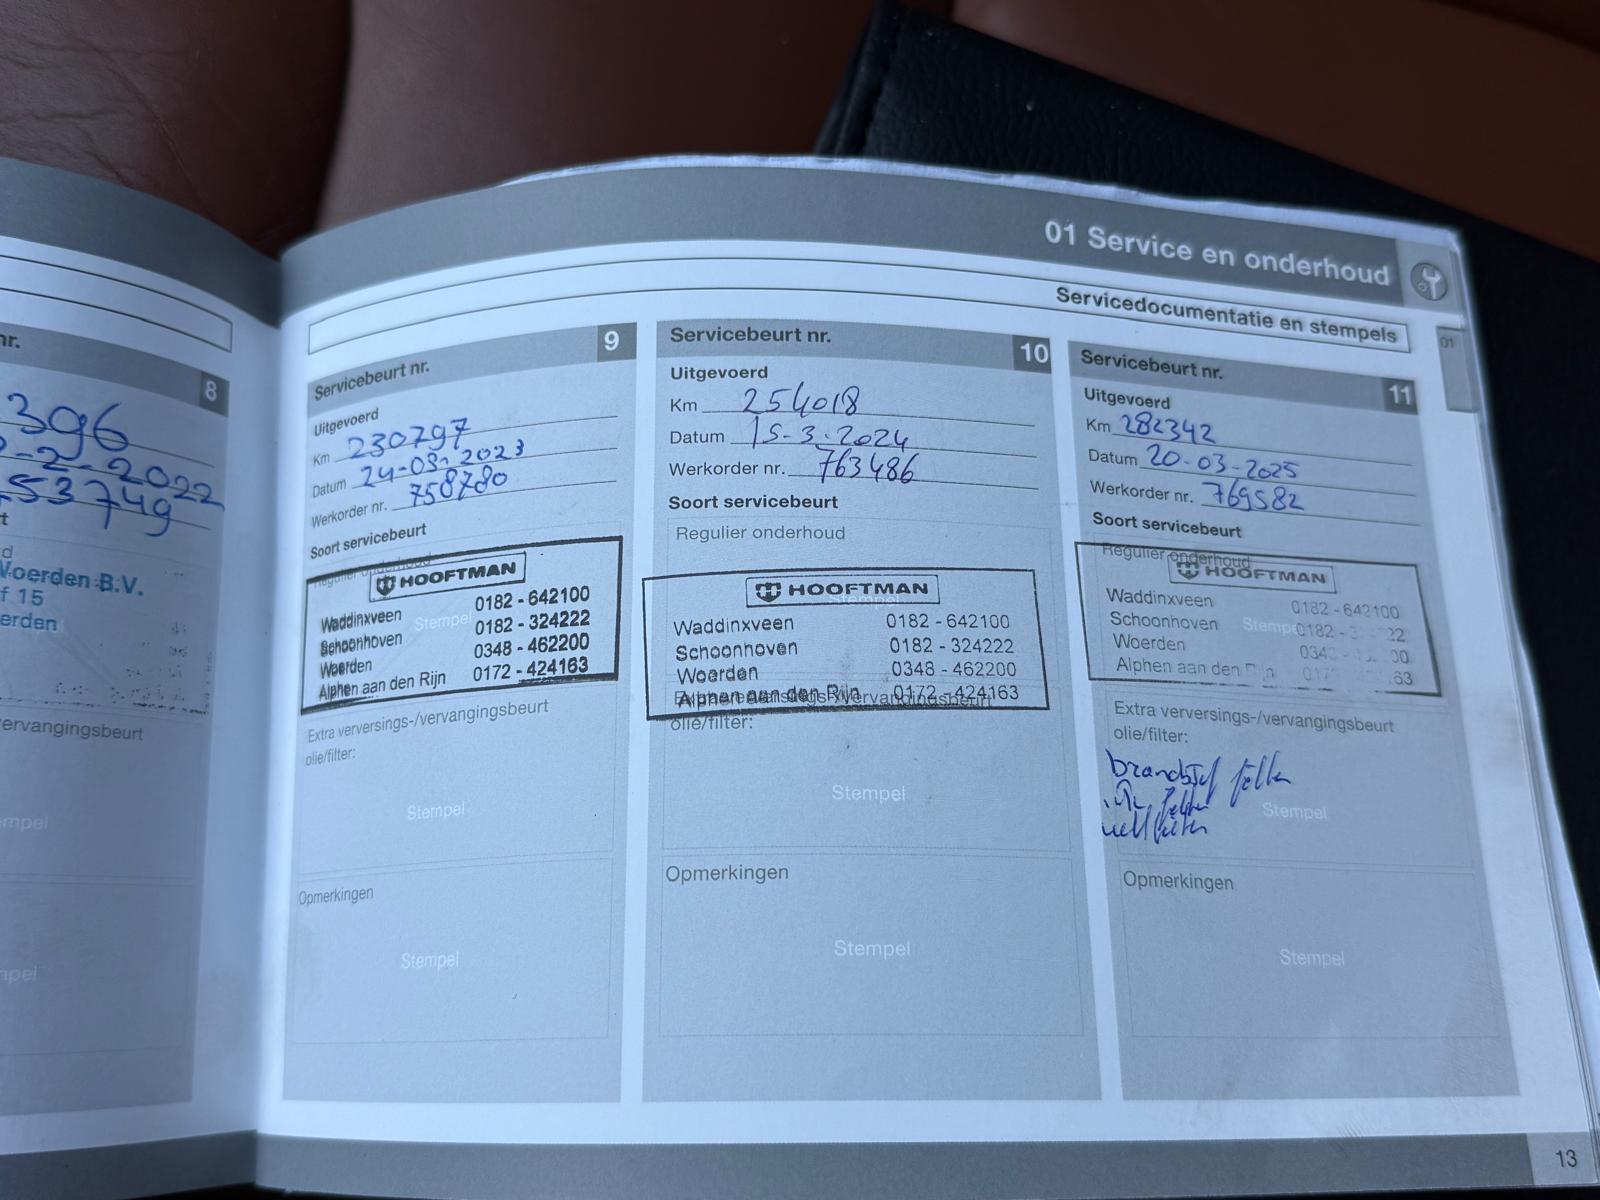 01 Service en onderhoud
Servicedocumentatie en stempels
01
nr.
8
396
-2-2022
53749
t
d
Woerden B.V.
f 15
erden
ervangingsbeurt
empel
mpel
Servicebeurt nr.
9
Uitgevoerd
Km 230797
Datum 24-03-2023
Werkorder nr. 758780
Soort servicebeurt
Regulier onderhoud
HOOFTMAN
Stempel
Waddinxveen 0182 - 642100
Schoonhoven 0182 - 324222
Woerden 0348 - 462200
Alphen aan den Rijn 0172 - 424163
Extra verversings-/vervangingsbeurt
olie/filter:
Stempel
Opmerkingen
Stempel
Servicebeurt nr.
10
Uitgevoerd
Km 254018
Datum 15-3-2024
Werkorder nr. 763486
Soort servicebeurt
Regulier onderhoud
HOOFTMAN
Stempel
Waddinxveen 0182 - 642100
Schoonhoven 0182 - 324222
Woerden 0348 - 462200
Alphen aan den Rijn 0172 - 424163
Extra verversings-/vervangingsbeurt
olie/filter:
Stempel
Opmerkingen
Stempel
Servicebeurt nr.
11
Uitgevoerd
Km 282342
Datum 20-03-2025
Werkorder nr. 769582
Soort servicebeurt
Regulier onderhoud
HOOFTMAN
Stempel
Waddinxveen 0182 - 642100
Schoonhoven 0182 - 3 22
Woerden 034 - 00
Alphen aan den Rijn 017 63
Extra verversings-/vervangingsbeurt
olie/filter:
brandstof filter
filter
Stempel
Opmerkingen
Stempel
13